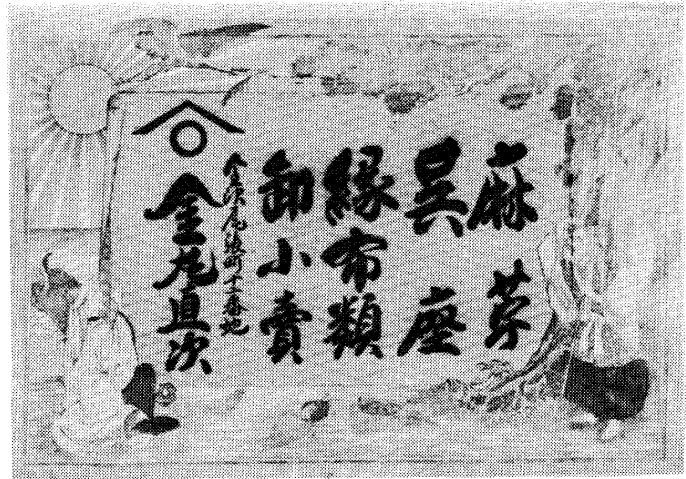 麻苧
呉座
縁布類
卸小賣
金沢尾張町十二番地
金尾直次